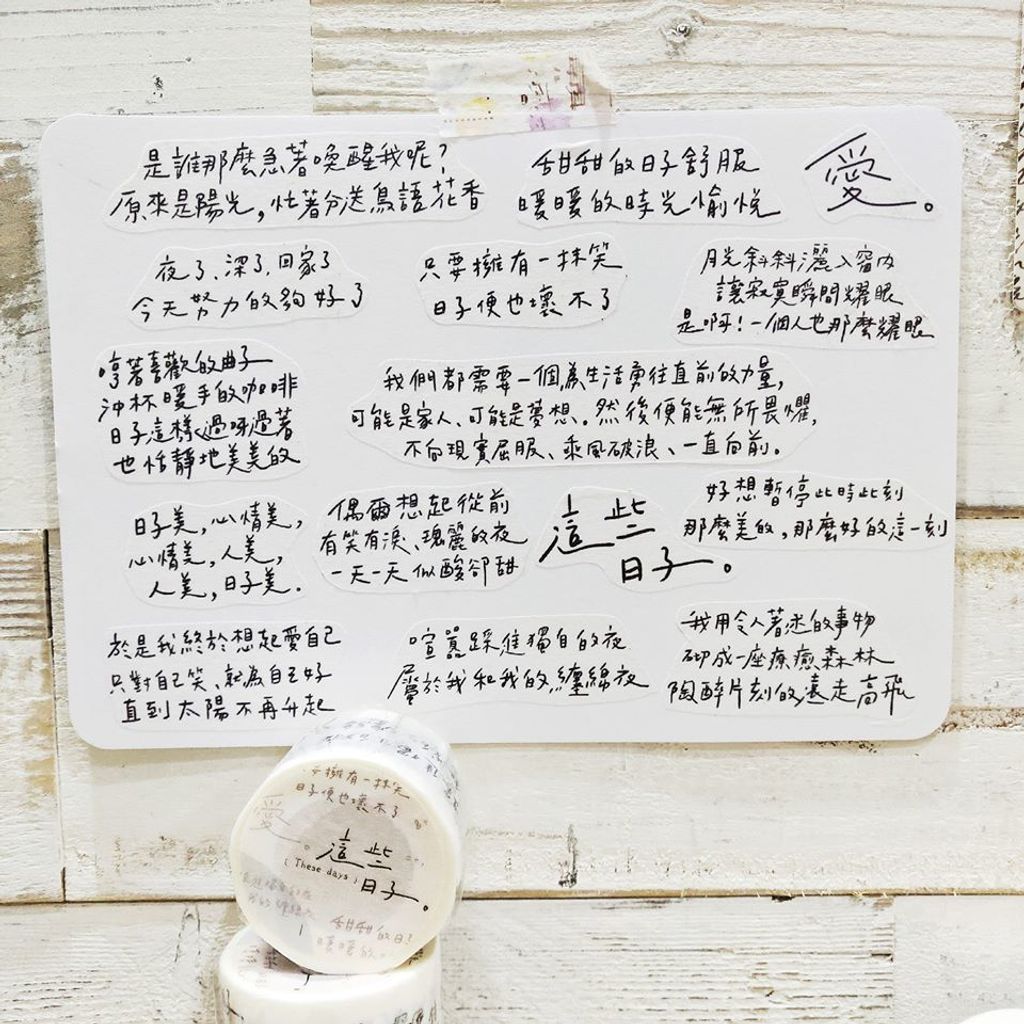 是誰那麼急著喚醒我呢?
原來是陽光,忙著分送鳥語花香
甜甜的日子舒服
暖暖的時光愉悅
愛。
夜了、深了、回家了
今天努力的夠好了
只要擁有一抹笑
日子便也壞不了
月光斜斜灑入窗內
讓寂寞瞬間耀眼
是啊!一個人也那麼耀眼
哼著喜歡的曲子
沖杯暖手的咖啡
日子這樣過呀過著
也恬靜地美美的
我們都需要一個為生活勇往直前的力量,
可能是家人、可能是夢想。然後便能無所畏懼,
不向現實屈服、乘風破浪、一直向前。
日子美,心情美,
心情美,人美,
人美,日子美.
偶爾想起從前
有笑有淚、瑰麗的夜
一天一天似酸卻甜
這些
日子。
好想暫停此時此刻
那麼美的,那麼好的這一刻
於是我終於想起愛自己
只對自己笑、就為自己好
直到太陽不再升起
喧囂踩進獨自的夜
屬於我和我的纏綿夜
我用令人著迷的事物
砌成一座療癒森林
陶醉片刻的遠走高飛
擁有一抹笑
日子便也壞不了
愛
這些
( These days )
日子。
甜甜的日子
暖暖的